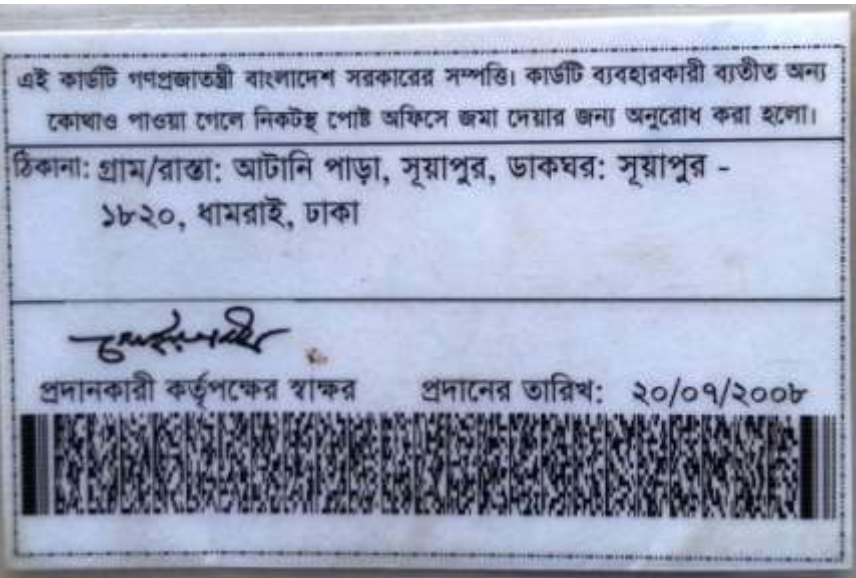 এই কার্ডটি গণপ্রজাতন্ত্রী বাংলাদেশ সরকারের সম্পত্তি। কার্ডটি ব্যবহারকারী ব্যতীত অন্য
কোথাও পাওয়া গেলে নিকটস্থ পোষ্ট অফিসে জমা দেয়ার জন্য অনুরোধ করা হলো।
ঠিকানা: গ্রাম/রাস্তা: আটানি পাড়া, সূয়াপুর, ডাকঘর: সূয়াপুর -
১৮২০, ধামরাই, ঢাকা
প্রদানকারী কর্তৃপক্ষের স্বাক্ষর প্রদানের তারিখ: ২০/০৭/২০০৮